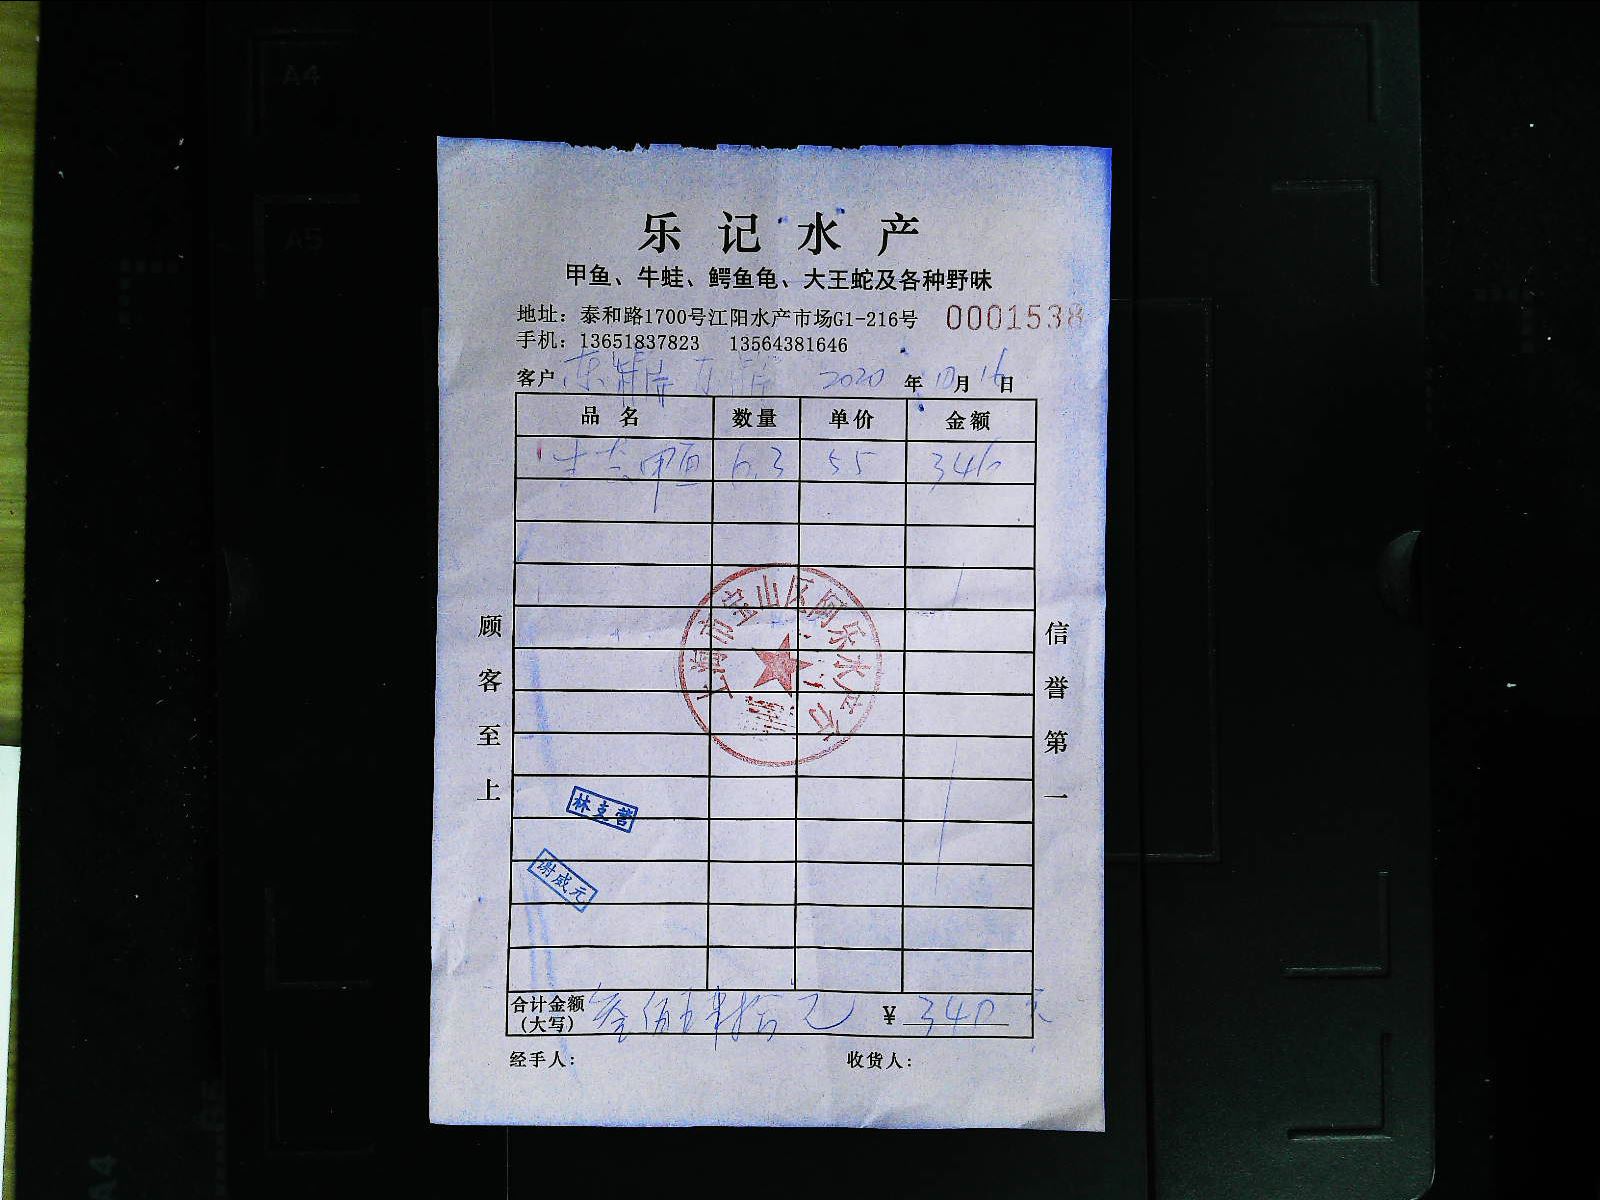 A4
A5
乐记水产
甲鱼、牛蛙、鳄鱼龟、大王蛇及各种野味
地址：泰和路1700号江阳水产市场G1-216号 0001538
手机：13651837823 13564381646
客户 2020年10月16日
品名 数量 单价 金额
生态甲鱼 6.3 55 346
上海市宝山区阿乐水产行
顾客至上
信誉第一
林支营
谢威元
合计金额（大写） 叁佰肆拾元 ¥ 340
经手人： 收货人：
A4